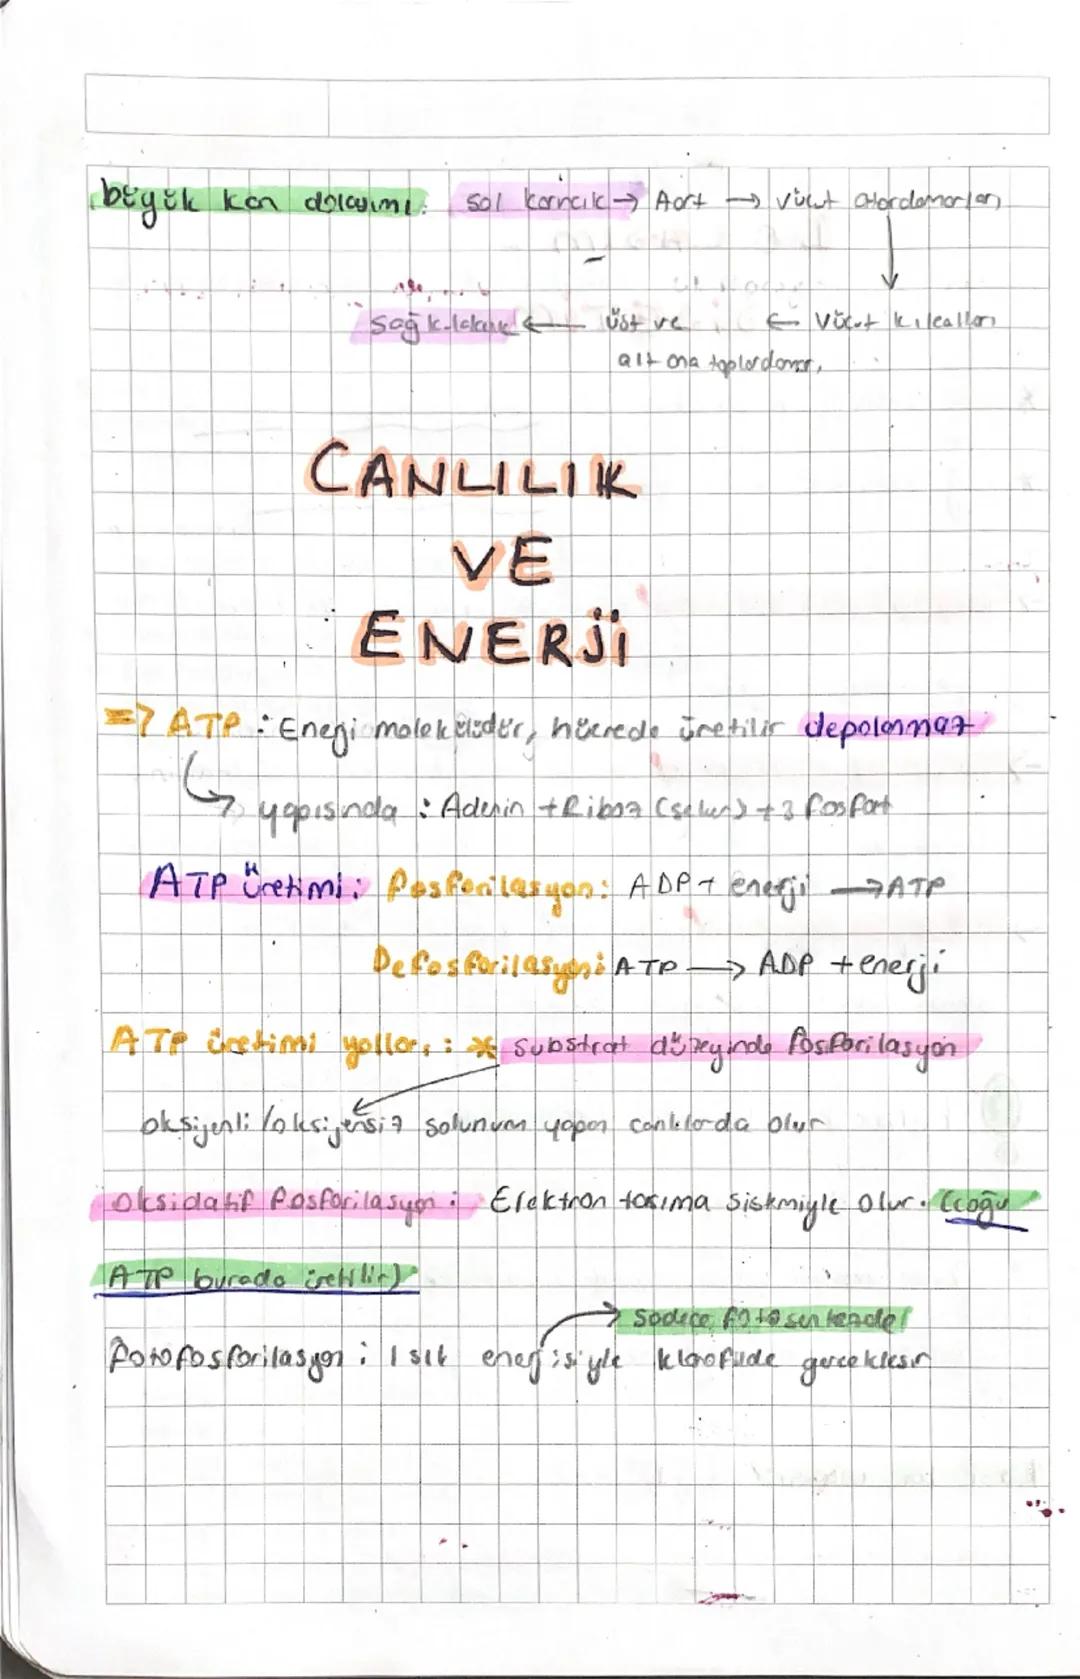 büyük kan dolaşımı: sol karıncık → Aort → vücut atardamarları
sağ kulakçık ← üst ve ← vücut kılcalları
alt ana toplardamar
CANLILIK
VE
ENERJİ
=> ATP : Enerji molekülüdür, hücrede üretilir depolanmaz
yapısında : Adenin + Riboz (şeker) + 3 fosfat
ATP üretimi: fosforilasyon: ADP + enerji → ATP
Defosforilasyon: ATP → ADP + enerji
ATP üretimi yolları : * substrat düzeyinde fosforilasyon
oksijenli / oksijensiz solunum yapan canlılarda olur
Oksidatif fosforilasyon : Elektron taşıma sistemiyle olur. (çoğu
ATP burada üretilir)
sadece fotosentezde!
fotofosforilasyon : Işık enerjisiyle klorofilde gerçekleşir